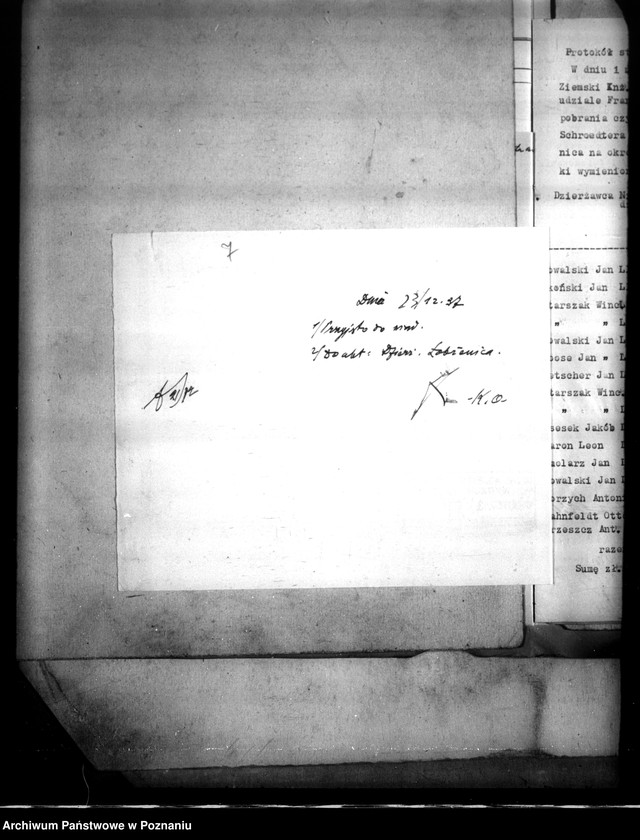 7
Dnia 23/12.37
1/ Przyjęto do wiad.
2/ Do akt: Dzierż. Łobżenica.
-K.O-
Protokół s
W dniu i
Ziemski Kn
udziale Fra
pobrania cz
Schroedtera
nica na okr
ki wymienion
Dzierżawca N
owalski Jan L
koński Jan L
tarszak Winc.
" " L
owalski Jan L
ose Jan " L
etscher Jan L
tarszak Winc.
" " L
osek Jakób
aron Leon
olarz Jan
owalski Jan
brzych Antoni
ahnfeldt Otto
rzeszcz Ant.
raze
Sumę zł.
Archiwum Państwowe w Poznaniu